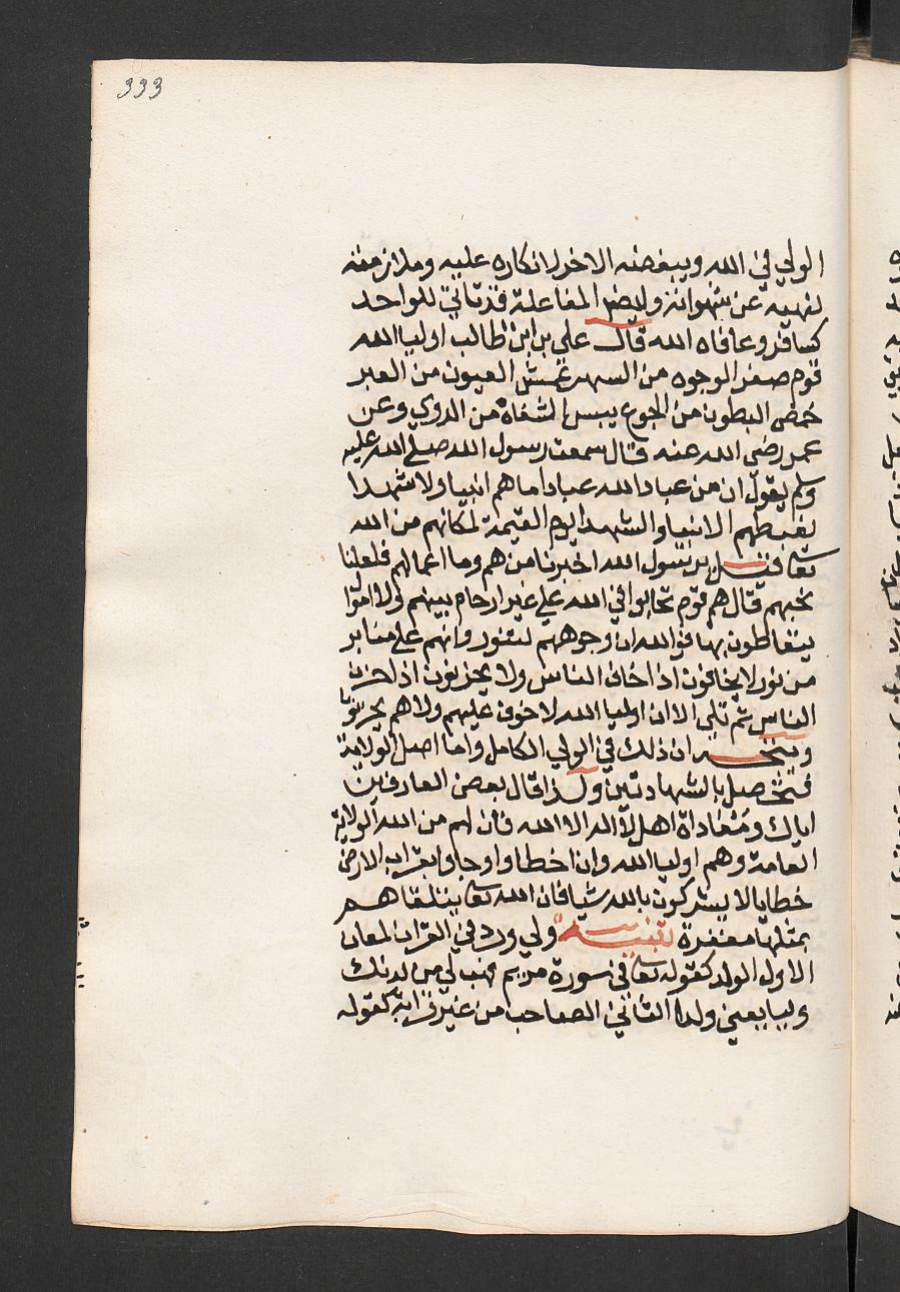 333
الولي في الله ويبغضه الاخر لانكاره عليه وملازمته
لنهيه عن شهواته وايضا المفاعلة قد تاتي للواحد
كسافر وعافاه الله قال علي بن ابن طالب اوليا الله
قوم صفر الوجوه من السهر عمش العيون من العبر
خمص البطون من الجوع يبس الشفاه من الدوي وعن
عمر رضي الله عنه قال سمعت رسول الله صلى الله عليه
وسلم يقول ان من عباد الله عبادا ما هم انبيا ولا شهدا
يغبطهم الانبيا والشهدا يوم القيمة لمكانهم من الله
تعا فقيل يرسول الله اخبرنا من هم وما اعمالهم فلعلنا
نحبهم قال هم قوم تحابوا في الله على غير ارحام بينهم ولا اموال
يتعاطون بها فوالله ان وجوههم لنور وانهم على منابر
من نور لا يخافون اذا خاف الناس ولا يحزنون اذا حزن
الناس ثم تلى الا ان اوليا الله لا خوف عليهم ولا هم يحزنون
ان ذلك في الولي الكامل واما اصل الولاية
فتحصل بالشهادتين ولذا قال بعض العارفين
اياك ومعاداة اهل لا اله الا الله فان لهم من الله الولاية
العامة وهم اوليا الله وان اخطاوا وجاوا بقراب الارض
خطايا لا يشركون بالله شيا فان الله تعا يتلقاهم
بمثلها مغفرة تنبيه ولي ورد في القران لمعان
الاول الولد كقوله تعا في سورة مريم فهب لي من لدنك
وليا يعني ولدا الثاني الصاحب من غير قرابة كقوله